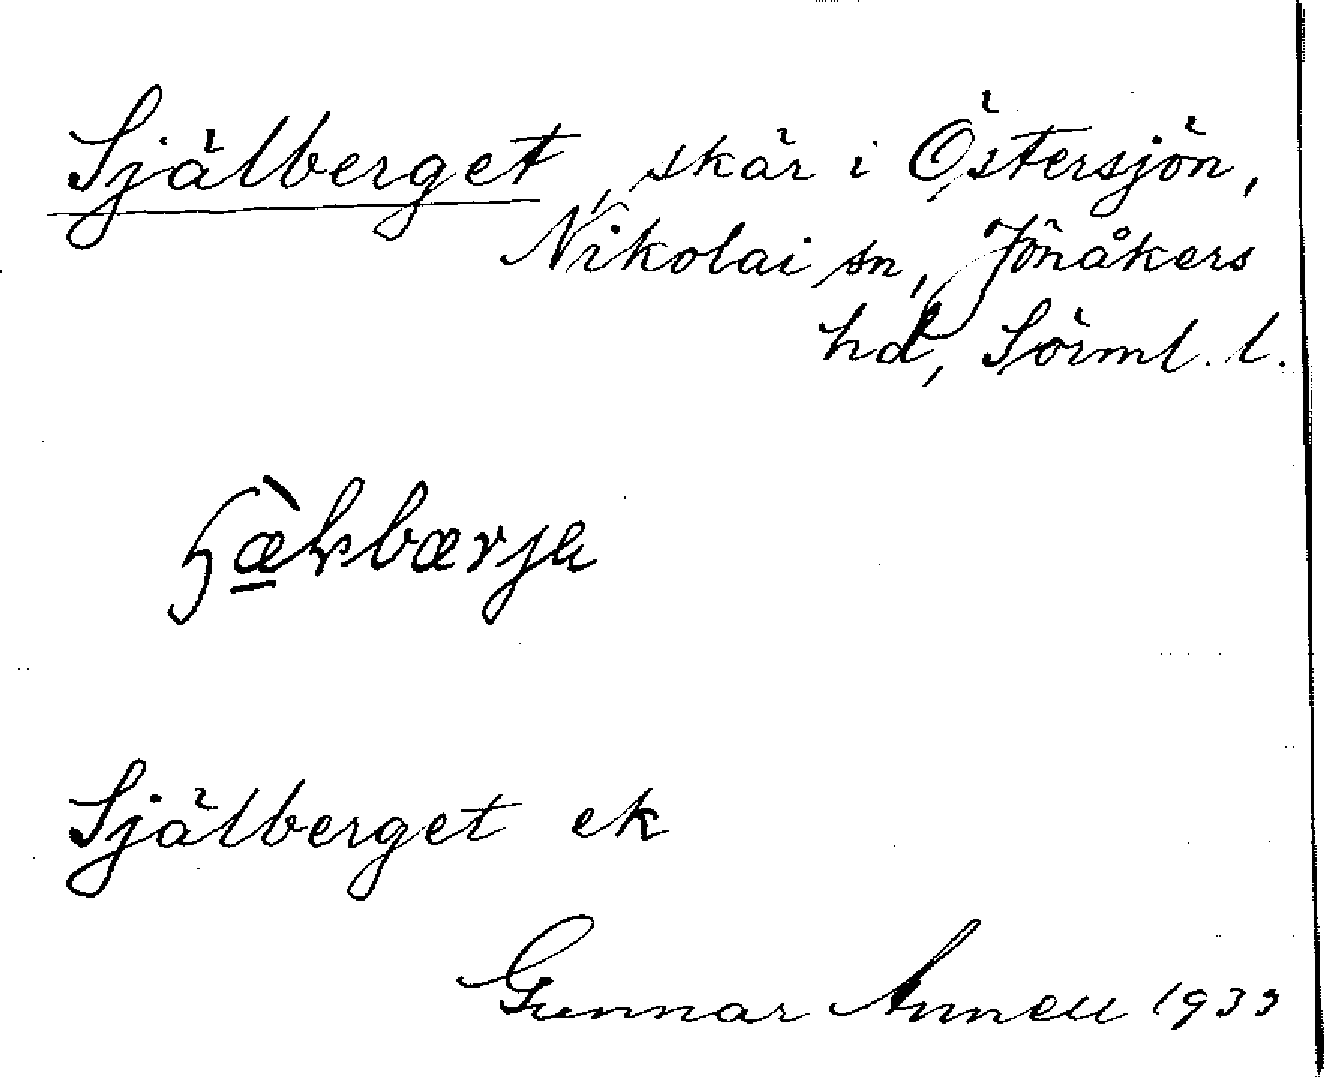 Själberget, skär i Östersjön,
Nikolai sn, Jönåkers
hd, Sörml. l.
Själberget ek
Gunnar Annell 1933